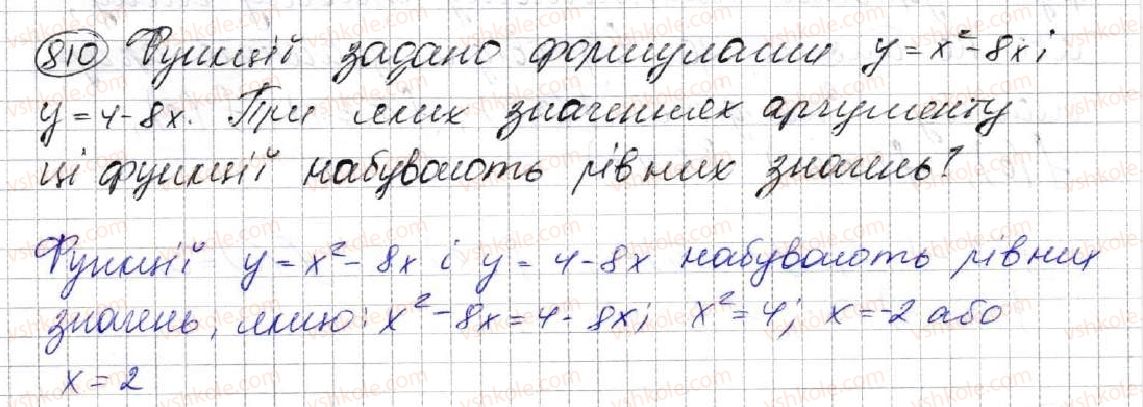 810 Функції задано формулами y = x² - 8x і
y = 4 - 8x. При яких значеннях аргументу
ці функції набувають рівних значень?
Функції y = x² - 8x і y = 4 - 8x набувають рівних
значень, якщо: x² - 8x = 4 - 8x; x² = 4; x = -2 або
x = 2